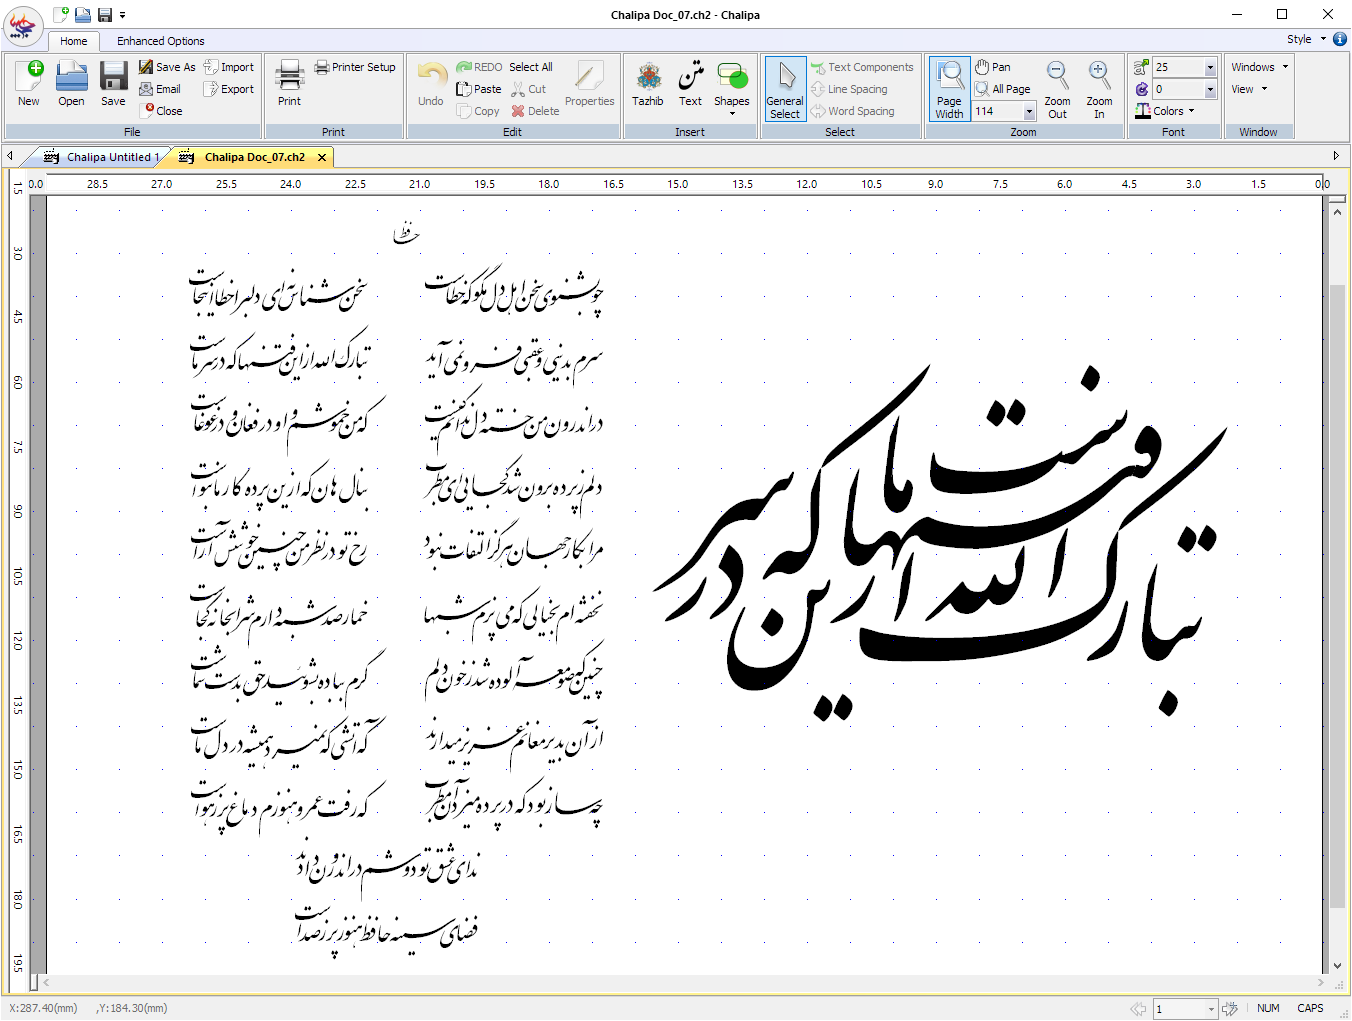 Chalipa Doc_07.ch2 - Chalipa
Home Enhanced Options Style
New Open Save Save As Email Close Import Export File
Print Printer Setup Print
Undo REDO Paste Copy Select All Cut Delete Properties Edit
Tazhib Text متن Shapes Insert
General Select Text Components Line Spacing Word Spacing Select
Page Width Pan All Page 114 Zoom Out Zoom In Zoom
25 0 Colors Font
Windows View Window
Chalipa Untitled 1 Chalipa Doc_07.ch2
0.0 28.5 27.0 25.5 24.0 22.5 21.0 19.5 18.0 16.5 15.0 13.5 12.0 10.5 9.0 7.5 6.0 4.5 3.0 1.5 0.0
1.5 3.0 4.5 6.0 7.5 9.0 10.5 12.0 13.5 15.0 16.5 18.0 19.5
حافظ
چو بشنوی سخن اهل دل مگو که خطاست سخن شناس نه ای دلبرا خطا اینجاست
سرم بدنیی و عقبی فرو نمی آید تبارک الله از این فتنها که در سر ماست
در اندرون من خسته دل ندانم کیست که من خموشم و او در فغان و در غوغاست
دلم ز پرده برون شد کجایی ای مطرب بنال هان که ازین پرده کار ما بنواست
مرا بکار جهان هرگز التفات نبود رخ تو در نظر من چنین خوشش آراست
نخفته ام بخیالی که می پزم شبها خمار صد شبه دارم شرابخانه کجاست
چنین که صومعه آلوده شد ز خون دلم گرم بباده بشویید حق بدست شماست
از آن بدیر مغانم عزیز میدارند که آتشی که نمیرد همیشه در دل ماست
چه ساز بود که در پرده میزد آن مطرب که رفت عمر و هنوزم دماغ پر ز هواست
ندای عشق تو دوشم در اندرون دادند
فضای سینه حافظ هنوز پر ز صداست
تبارک الله از این فتنها که در سر ماست
X:287.40(mm) ,Y:184.30(mm) 1 NUM CAPS